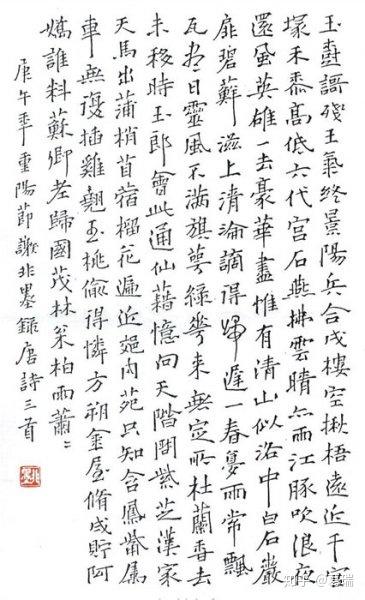 玉樹謌殘王氣終景陽兵合戍樓空楸梧遠近千官
塚禾黍高低六代宮石燕拂雲晴亦雨江豚吹浪夜
還風英雄一去豪華盡惟有青山似洛中白石巖
扉碧蘚滋上清淪謫得歸遲一春夢雨常飄
瓦盡日靈風不滿旗萼綠華來無定所杜蘭香去
未移時玉郎會此通仙籍憶向天階問紫芝漢家
天馬出蒲梢苜蓿榴花遍近郊內苑只知含鳳觜屬
車無復插雞翹玉桃偷得憐方朔金屋脩成貯阿
嬌誰料蘇卿老歸國茂林松柏雨蕭〻
庚午年重陽節謝非墨錄唐詩三首
非墨